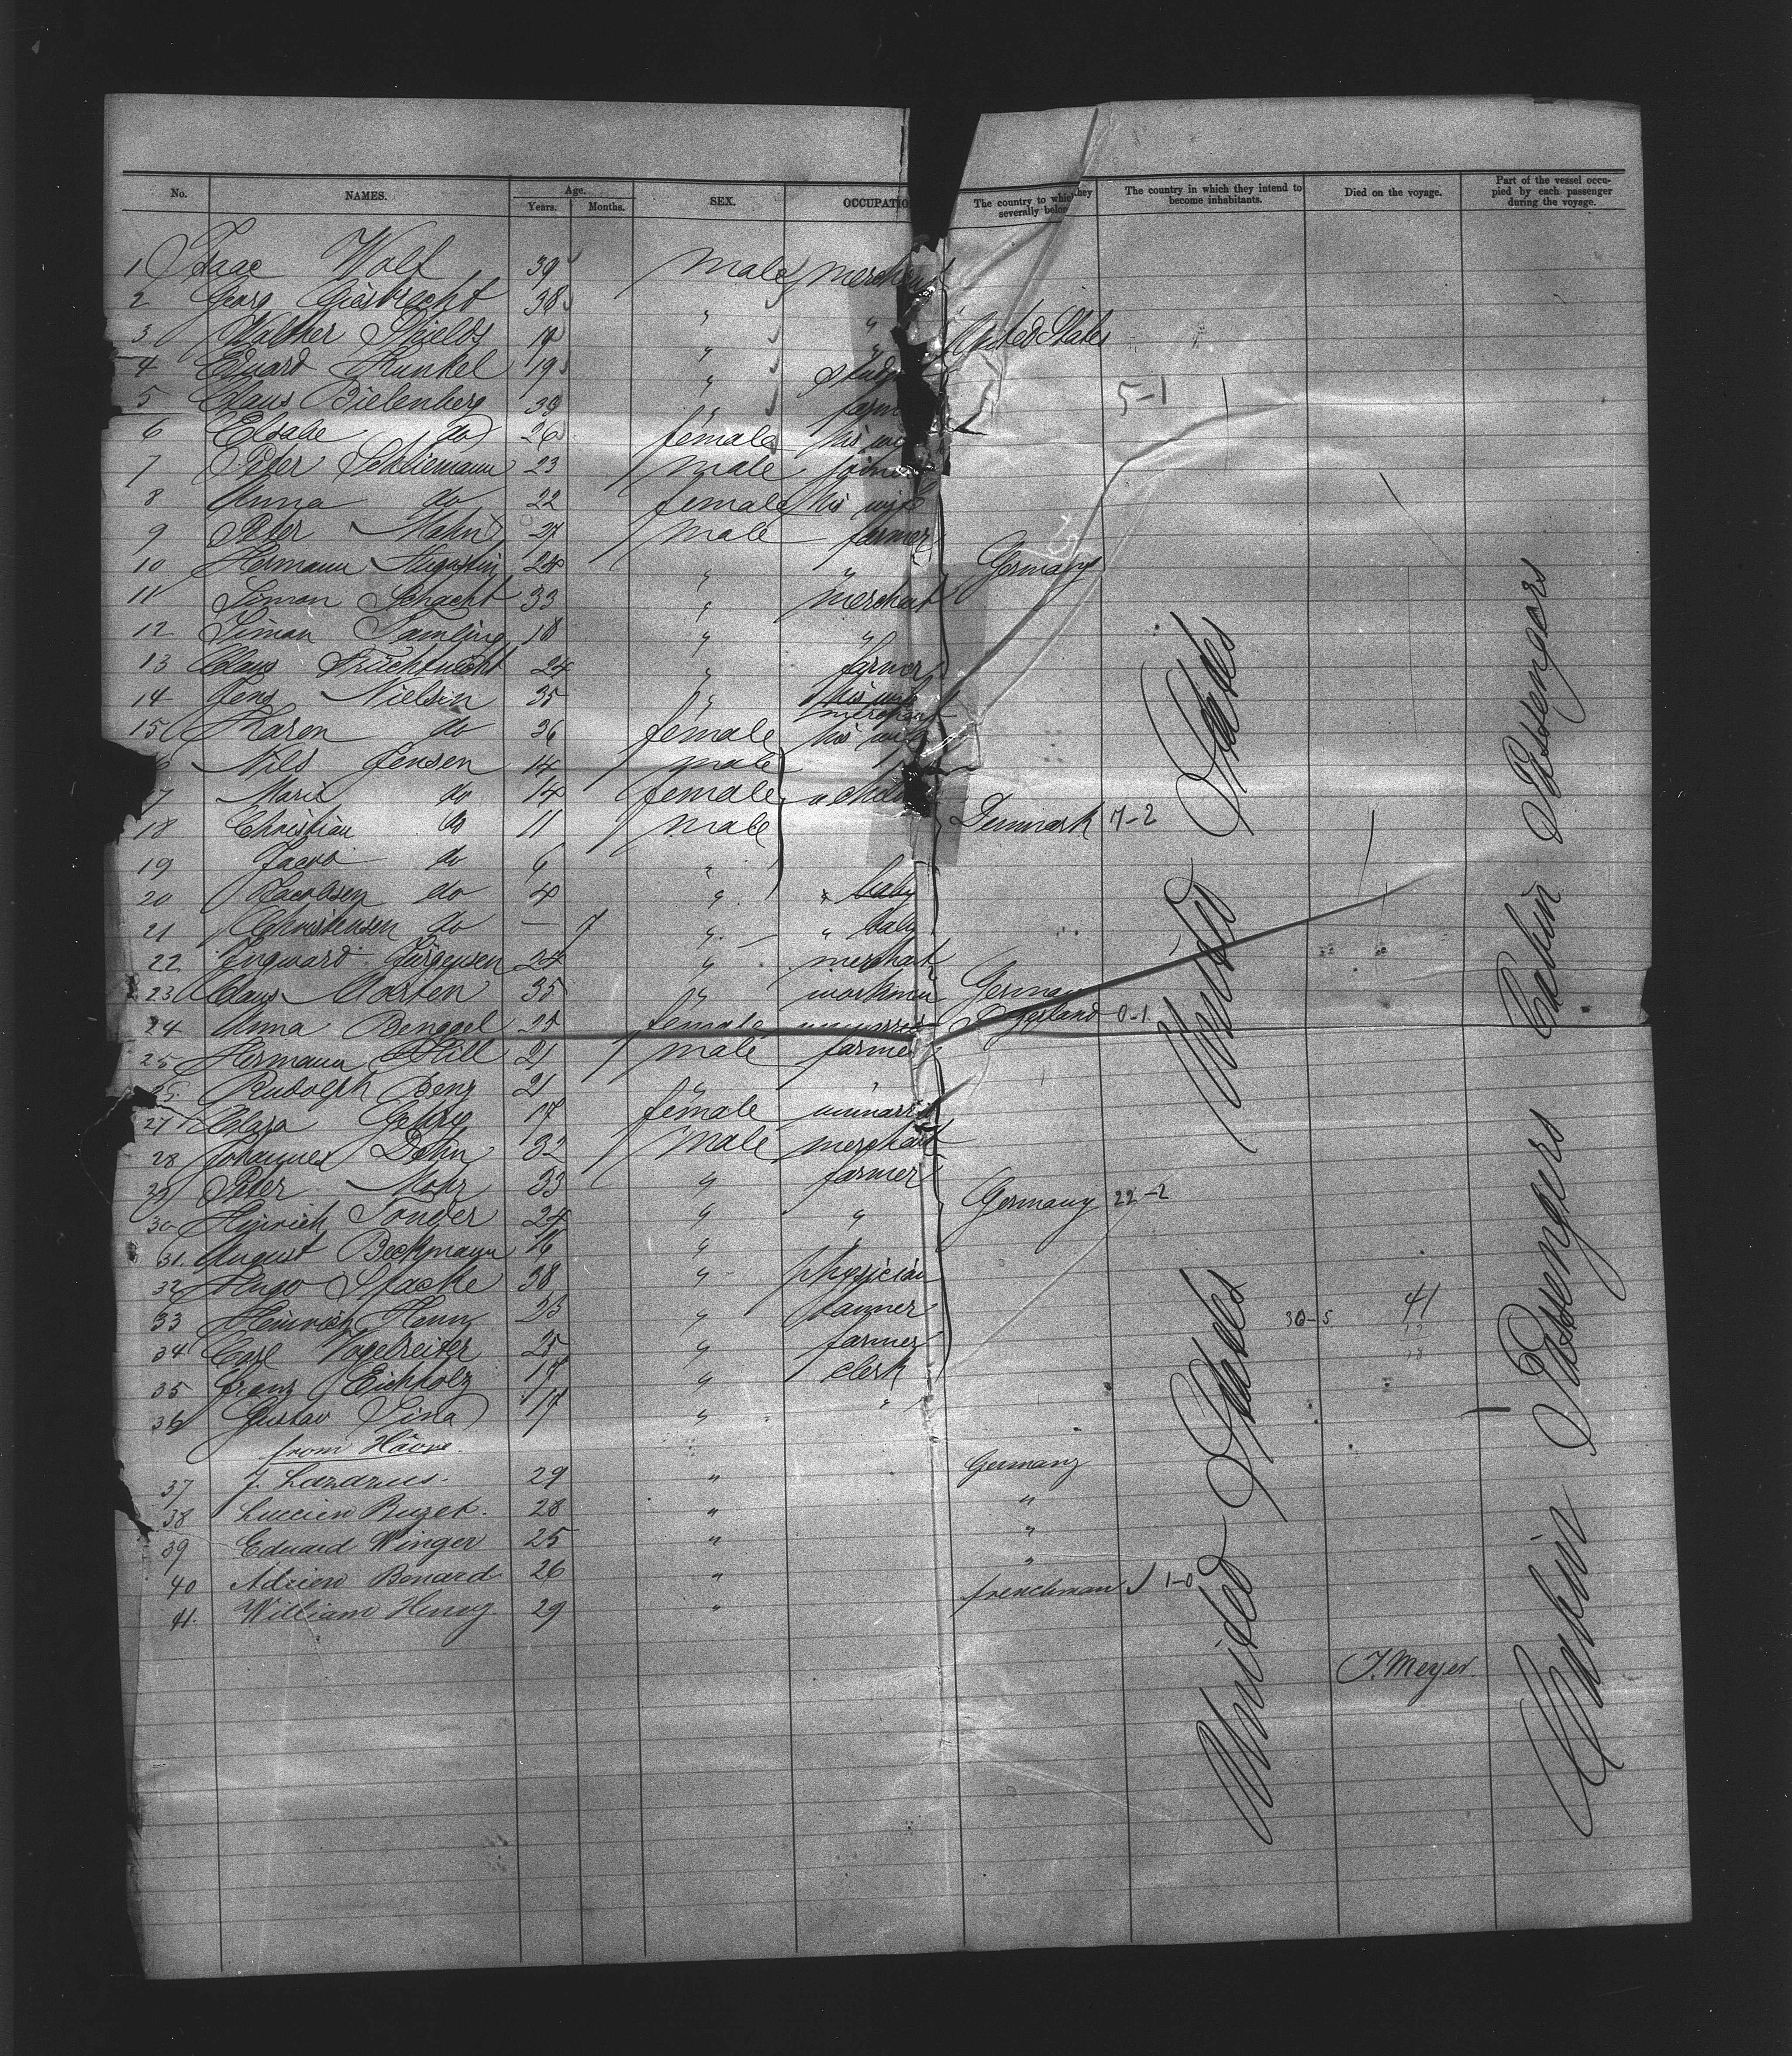 No. NAMES. Age. Years. Months. SEX. OCCUPATIO The country to which they severally belon The country in which they intend to become inhabitants. Died on the voyage. Part of the vessel occupied by each passenger during the voyage.
1 Isaac Wolf 39 male merchant
2 Georg Giesbrecht 38 " "
3 Walther Shields 19 " " United States
4 Eduard Kunkel 19 "
5 Claus Bielenberg 39 " farm 5-1
6 Elsabe do 26 female his
7 Peter Schliemann 23 male
8 Anna do 22 female his wife
9 Peter Mahn 27 male farmer
10 Hermann Augustin 24 " " Germany
11 Simon Schacht 33 " merchant
12 Simon Tamling 18 " "
13 Claus 24 " farmer
14 Jens Nielsen 35 " merchant
15 Karen do 36 female his wife
Nils Jensen 14 male
7 Marie do 14 female
18 Christian do 11 male Denmark 7-2
19 Jacob do 6 "
20 Jacobsen do 4 " " baby
21 Christensen do — 7 " " baby
22 Ingward Jürgensen 24 " merchant
23 Claus Marten 35 " workman German
24 Anna Benggel female 0-1
25 Hermann Still 21 male farmer
Rudolph Benz 21 " "
27 Clara 17 female unmarrid
28 Johannes Dehn 32 male merchant
29 Peter Mohr 23 " farmer
30 Hinrich Tonder 24 " " Germany 22-2
31. August Beckmann 16 " "
32 Hugo Stacke 38 " physician
33 Heinrich Henn 23 " tanner 30-5 41
34 Carl Vogelreiter 25 " farmer
35 Franz Eichholz 17 " clerk
36 Gustav Sina 17 " "
from Havre.
37 J. Lazarus. 29 " Germany
38 Lucien Buzet. 28 " "
39 Eduard Winger 25 " "
40 Adrien Bonard 26 " "
41. William Henry. 29 " frenchman 1-0
J. Meyer.
United States
United States
Cabin Passengers
Cabin Passengers